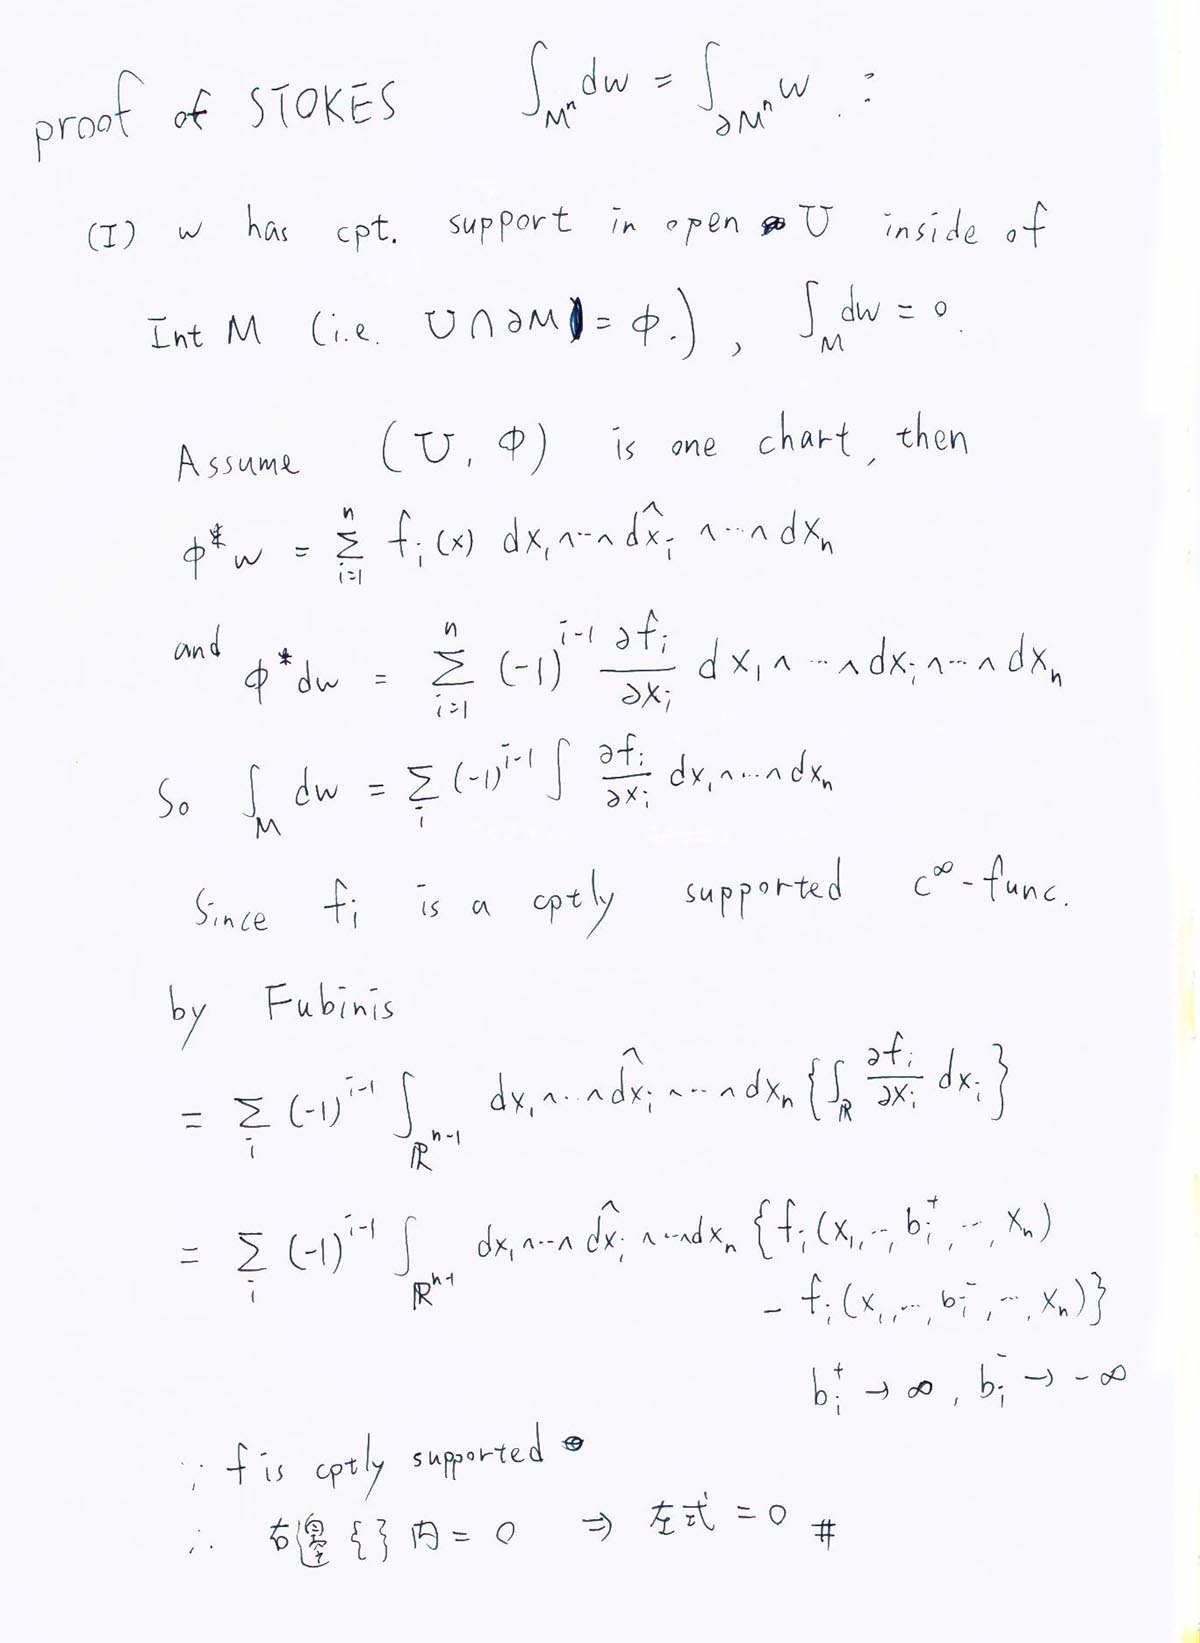 proof of STOKES ∫_{Mⁿ} dw = ∫_{∂Mⁿ} w :
(I) w has cpt. support in open U inside of
Int M (i.e. U∩∂M = φ.), ∫_M dw = 0.
Assume (U, Φ) is one chart, then
Φ*w = Σ_{i=1}^{n} f_i(x) dx₁∧--∧dx̂_i∧···∧dx_n
and Φ*dw = Σ_{i=1}^{n} (-1)^{i-1} ∂f_i/∂x_i dx₁∧···∧dx_i∧···∧dx_n
So ∫_M dw = Σ_i (-1)^{i-1} ∫ ∂f_i/∂x_i dx₁∧···∧dx_n
Since f_i is a cptly supported C^∞-func.
by Fubinis
= Σ_i (-1)^{i-1} ∫_{ℝ^{n-1}} dx₁∧··∧dx̂_i∧···∧dx_n {∫_ℝ ∂f_i/∂x_i dx_i}
= Σ_i (-1)^{i-1} ∫_{ℝ^{n-1}} dx₁∧--∧dx̂_i∧··∧dx_n {f_i(x₁,··,b_i⁺,··,x_n)
- f_i(x₁,··,b_i⁻,··,x_n)}
b_i⁺ → ∞, b_i⁻ → -∞
∵ f is cptly supported
∴ 右邊{ }內 = 0 ⇒ 左式 = 0 #